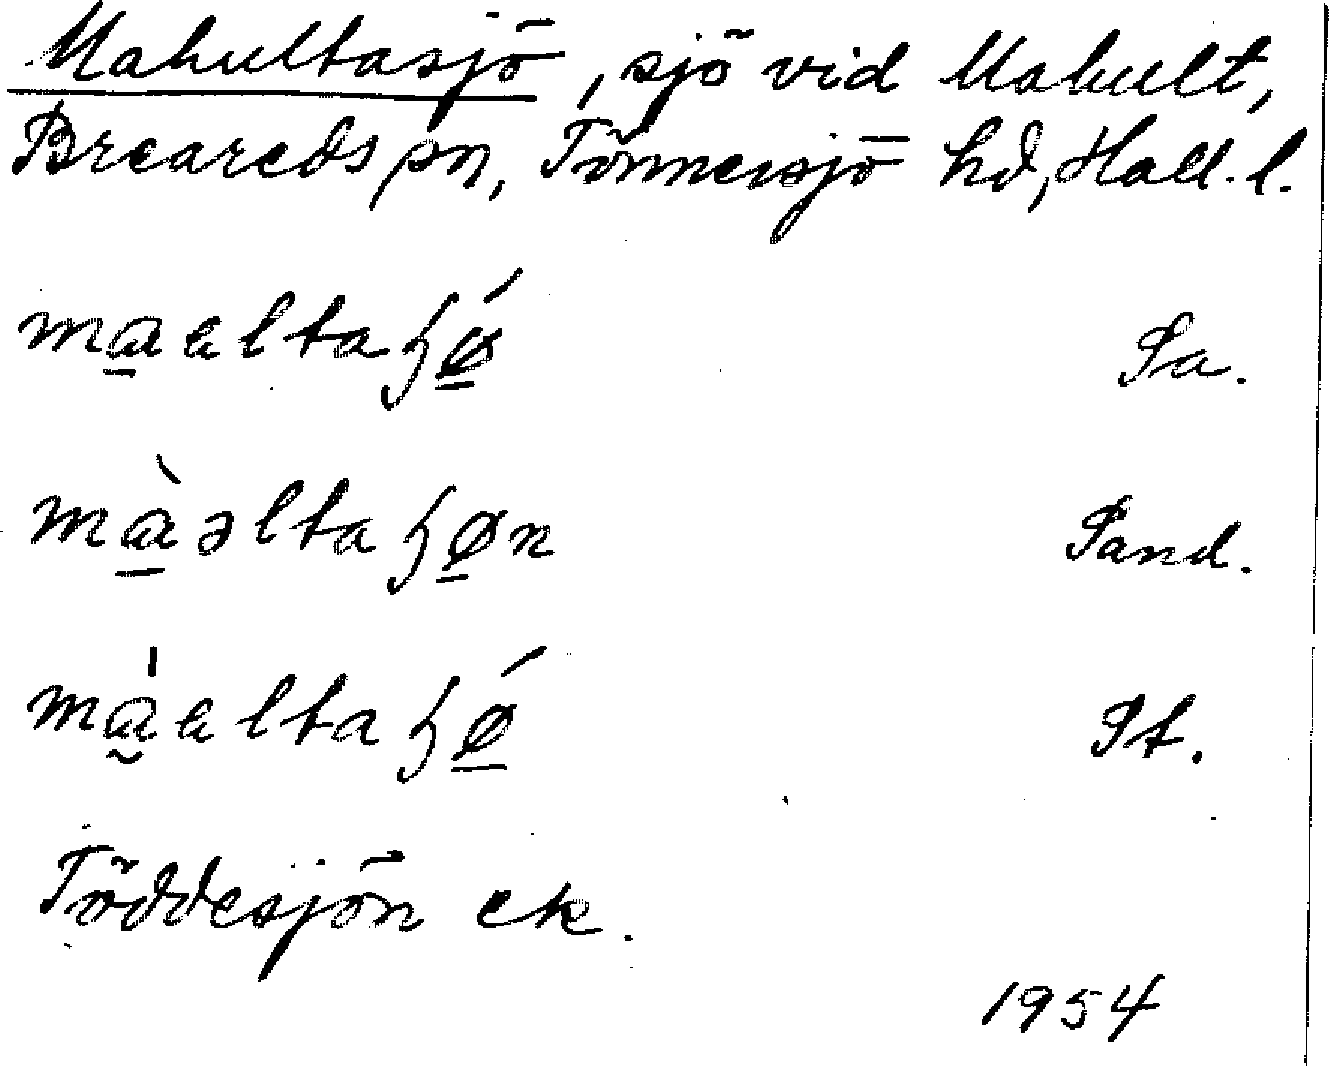 Mahultasjö, sjö vid Mahult,
Breareds sn, Tönnersjö hd, Hall. l.
ma̲ɐltaɧǿ̲ Sa.
mà̲əltaɧø̲n Sand.
ma̰̍ɐltaɧǿ̲ St.
Töddesjön ek.
1954